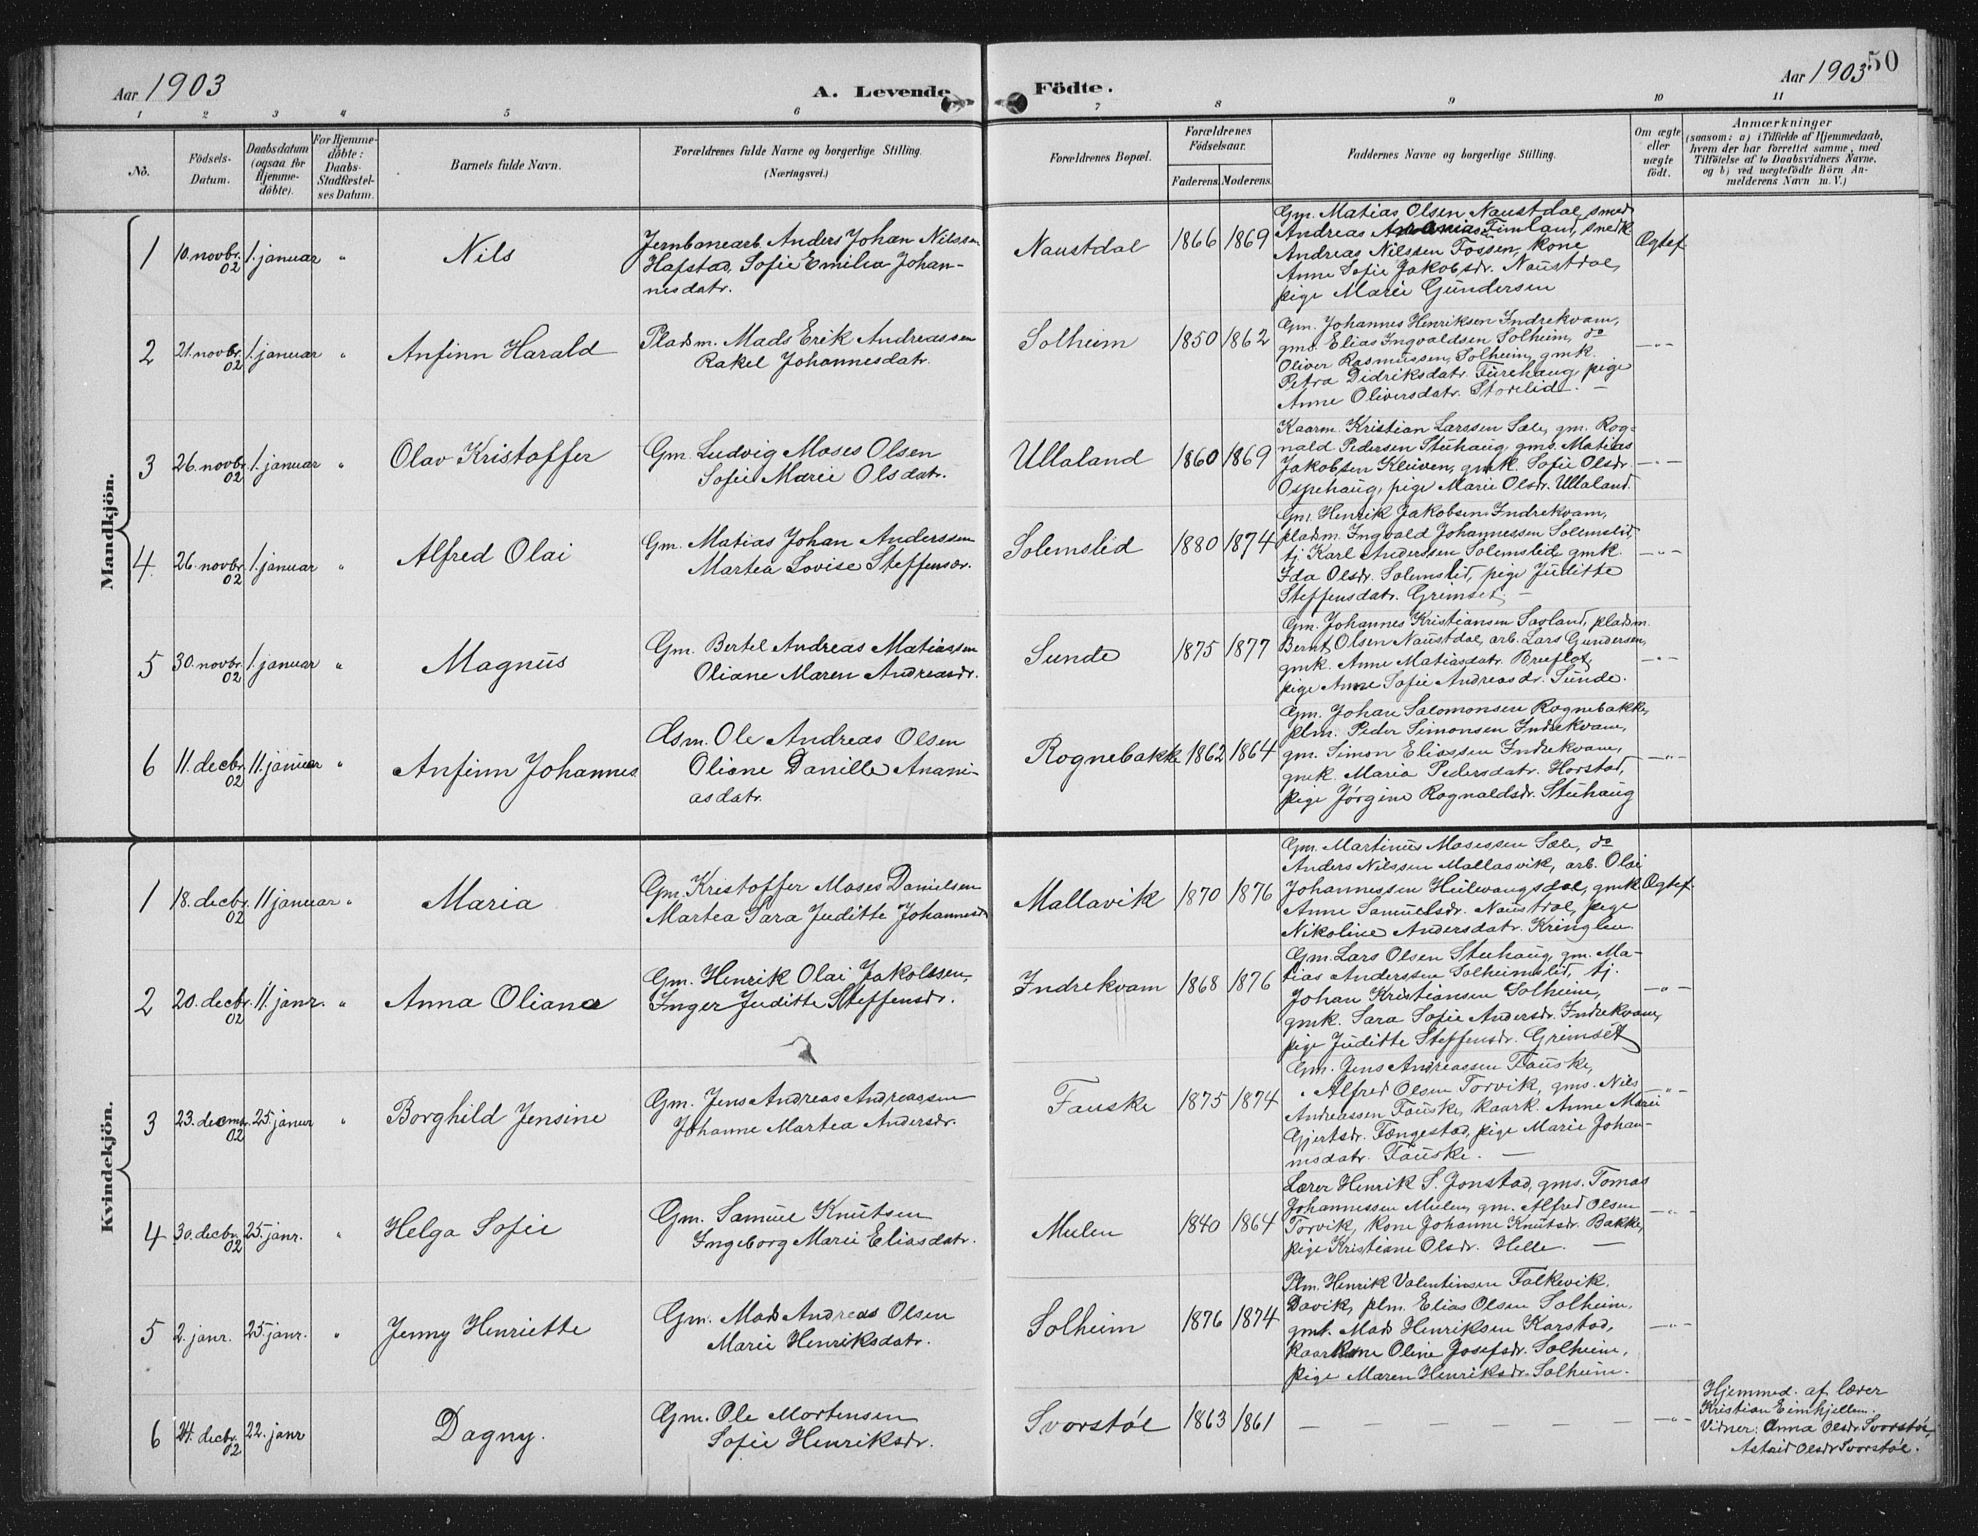 Aar 1903
A. Levende Födte.
Aar 1903
50
1 2 3 4 5 6 7 8 9 10 11
No.
Födsels-
Datum.
Daabsdatum
(ogsaa for
Hjemme-
döbte).
For Hjemme-
döbte:
Daabs-
Stadfæstel-
ses Datum.
Barnets fulde Navn.
Forældrenes fulde Navne og borgerlige Stilling.
(Næringsvei.)
Forældrenes Bopæl.
Forældrenes
Födselsaar.
Faderens. Moderens.
Faddernes Navne og borgerlige Stilling.
Om ægte
eller
uægte
födt.
Anmærkninger
(saasom: a) i Tilfælde af Hjemmedaab,
hvem der har forrettet samme, med
Tilföielse af to Daabsvidners Navne,
og b) ved uægtefödte Börn An-
melderens Navn m. V.)
Mandkjön.
1
10. novbr.
02
1. januar
"
Nils
Jernbanearb. Anders Johan Nilssen
Hafstad, Sofie Emilia Johan-
nesdatr.
Naustdal
1866 1869
Gm. Matias Olsen Naustdal, smed
Andreas Ananias Fimland, smedk
Andreas Nilssen Fossen, kone
Anne Sofie Jakobsdr. Naustdal,
pige Marie Gundersen
Ægtef.
2
21. novbr.
02
1. januar
"
Anfinn Harald
Pladsm. Mads Erik Andreassen
Rakel Johannesdatr.
Solheim
1850 1862
Gm. Johannes Henriksen Indrekvam,
gms. Elias Ingvaldsen Solheim, do
Oliver Rasmussen Solheim, gmk.
Petra Didriksdatr. Furehaug, pige
Anne Oliversdatr. Storelid. —
—"—
3
26. novbr.
02
1. januar
"
Olav Kristoffer
Gm. Ludvig Moses Olsen
Sofie Marie Olsdatr.
Ullaland
1860 1869
Kaarm. Kristian Larssen Sæle, gm. Rog-
nald Pedersen Stuhaug, gms. Matias
Jakobsen Kleiven, gmk. Sofie Olsdr.
Ospehaug, pige Marie Olsdr. Ullaland.
—"—
4.
26. novbr.
02
1. januar
"
Alfred Olai
Gm. Matias Johan Anderssen
Martea Lovise Steffensdr.
Solemslid
1880 1874
Gm. Henrik Jakobsen Indrekvam,
pladsm. Ingvald Johannessen Solemslid,
tj. Karl Anderssen Solemslid, gmk.
Ida Olsdr. Solemslid, pige Juditte
Steffensdatr. Grimset. —
—"—
5
30. novbr.
02
1. januar
"
Magnus
Gm. Bertel Andreas Matiassen
Oliane Maren Andreasdr.
Sunde
1875 1877
Gm. Johannes Kristiansen Sagland, pladsm.
Bernt Olsen Naustdal, arb. Lars Gundersen,
gmk. Anne Matiasdatr. Breflot,
pige Anne Sofie Andreasdr. Sunde.
—"—
6
11. decbr.
02
11. januar
"
Anfinn Johannes
Gsm. Ole Andreas Olsen
Oliane Danille Anani-
asdatr.
Rognebakke
1862 1864
Gm. Johan Salomonsen Rognebakke,
plm. Peder Simonsen Indrekvam,
gm. Simon Eliassen Indrekvam,
gmk. Maria Pedersdatr. Horstad,
pige Jørgine Rognaldsdr. Stuhaug
—"—
Kvindekjön.
1
18. decbr.
02
11 januar
"
Maria
Gm. Kristoffer Moses Danielsen
Martea Sara Juditte Johannesdr
Mallavik
1870 1876
Gm. Martinus Mosessen Sæle, do
Anders Nilssen Mallasvik, arb. Olai
Johannessen Hulvangsdal, gmk.
Anne Samuelsdr. Naustdal, pige
Nikoline Andersdatr. Kringlen.
Ægtef.
2
20. decbr.
02
11. janr.
"
Anna Oliana
Gm. Henrik Olai Jakobsen,
Inger Juditte Steffensdr.
Indrekvam
1868 1876
Gm. Lars Olsen Stuhaug, gm. Ma-
tias Anderssen Solheimslid, tj.
Johan Kristiansen Solheim,
gmk. Sara Sofie Andersdr. Indrekvam,
pige Juditte Steffensdr. Grimset
—"—
3
23. decmr.
02
25. januar
"
Borghild Jensine
Gm. Jens Andreas Andreassen
Johanne Martea Andersdr.
Fauske
1875 1874
Gm. Jens Andreassen Fauske,
" Alfred Olsen Torvik, gms. Nils
Andreassen Fauske, kaark. Anne Marie
Gjertsdr. Fængestad, pige Marie Johan-
nesdatr. Fauske. —
—"—
4
30. decbr.
02
25. janr.
"
Helga Sofie
Gm. Samuel Knutsen
Ingeborg Marie Eliasdatr.
Mulen
1840 1864
Lærer Henrik S. Jonstad, gms. Tomas
Johannessen Mulen, gm. Alfred Olsen
Torvik, kone Johanne Knutsdr. Bakke,
pige Kristiane Olsdr. Helle. —
—"—
5
2. janr.
25. janr.
"
Jenny Henriette
Gm. Mads Andreas Olsen
Marie Henriksdatr.
Solheim
1876 1874
Plm. Henrik Valentinsen Falkevik,
Davik, plm. Elias Olsen Solheim,
gms. Mads Henriksen Karstad,
kaarkone Oline Josefsdr. Solheim,
pige Maren Henriksdr. Solheim.
—"—
6
24. decbr.
02
22. janr
Dagny.
Gm. Ole Mortensen
Sofie Henriksdr.
Svorstøl
1863 1861
— — — — — — —
—"—
Hjemmed. af lærer
Kristian Eimhjellen.
Vidner: Anna Olsdr. Svorstøl,
Astrid Olsdr Svorstøl.